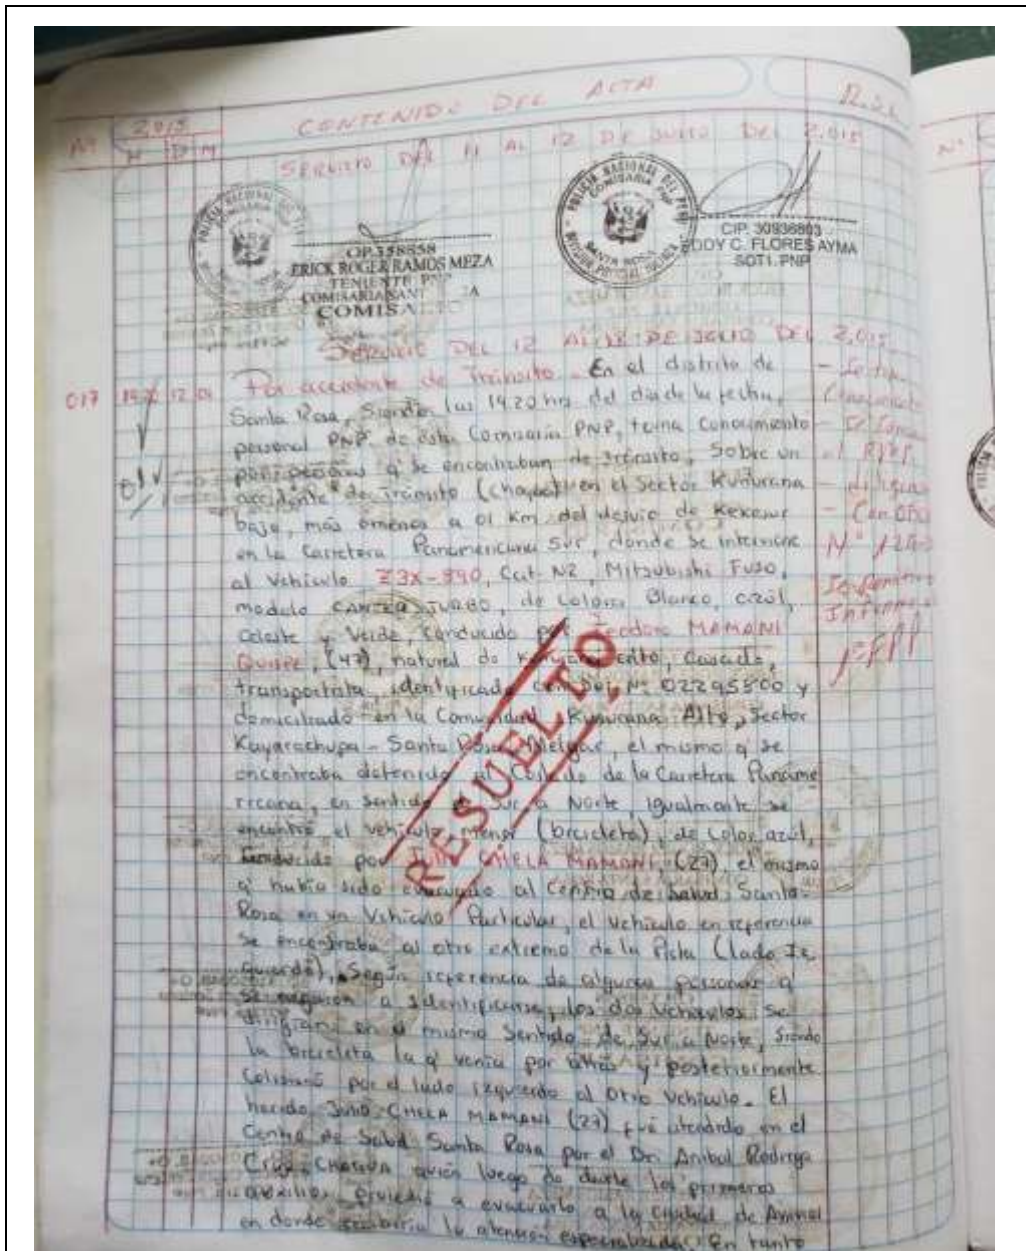 CONTENIDO DEL ACTA
Nº 2,015
H D M
SERVICIO DEL 11 AL 12 DE JULIO DEL 2,015
POLICIA NACIONAL DEL PERU
COMISARIA PNP
SANTA ROSA
POLICIA NACIONAL DEL PERU
COMISARIA PNP
SANTA ROSA
DIVISION POLICIAL JULIACA
OP.358858
ERICK ROGER RAMOS MEZA
TENIENTE PNP
COMISARIA SANT A
COMISA
CIP. 30936803
EDDY C. FLORES AYMA
SOT1. PNP
SERVICIO DEL 12 AL DE JULIO DEL 2,015
017 12 Por accidente de Tránsito - En el distrito de
Santa Rosa, Siendo las 19.20 hrs del dia de la fecha,
personal PNP. de esta Comisaria PNP, toma Conocimiento
por personas q' se encontraban de tránsito, Sobre un
accidente de Tránsito (choque) en el Sector Kunurana
baja, más omenos a 01 Km del desvio de
en la Carretera Panamericana Sur, donde se interviene
al Vehiculo Z3X-890, Cat. N2, Mitsubishi Fuso,
modelo CANTER TURBO, de Colores Blanco, azúl,
Celeste y Verde, Conducido por Teodoro MAMANI
QUISPE, (47), natural de Casado,
transportista, identificado con DNI Nº 02295500 y
domiciliado en la Comunidad Kunurana Alto, Sector
Kayarachupa - Santa Rosa - Melgar, el mismo q' se
encontraba detenido al Costado de la Carretera Paname
ricana, en sentido de Sur a Norte Igualmente se
encontró el vehiculo menor (bicicleta), de Color azúl,
Conducido por Julio CHELA MAMANI, (27), el mismo
q' habia sido evacuado al Centro de Salud Santa
Rosa en un Vehiculo Particular, el Vehiculo en referencia
Se encontraba al otro extremo de la Pista (lado Iz
quierdo), Según referencia de algunas personas q'
se negaron a identificarse, los dos Vehiculos se
dirigian en el mismo Sentido de Sur a Norte, siendo
la bicicleta la q' venia por atrás y posteriormente
Colisionó por el lado izquierdo al Otro Vehiculo. El
herido Julio CHELA MAMANI (27) fué atendido en el
Centro de Salud Santa Rosa por el Dr. Anibal Rodrigo
CRUZ quien luego de darle los primeros
auxilios procedió a evacuarlo a la Ciudad de Ayaviri
en donde recibiria la atención especializada. En tanto
RESUELTO